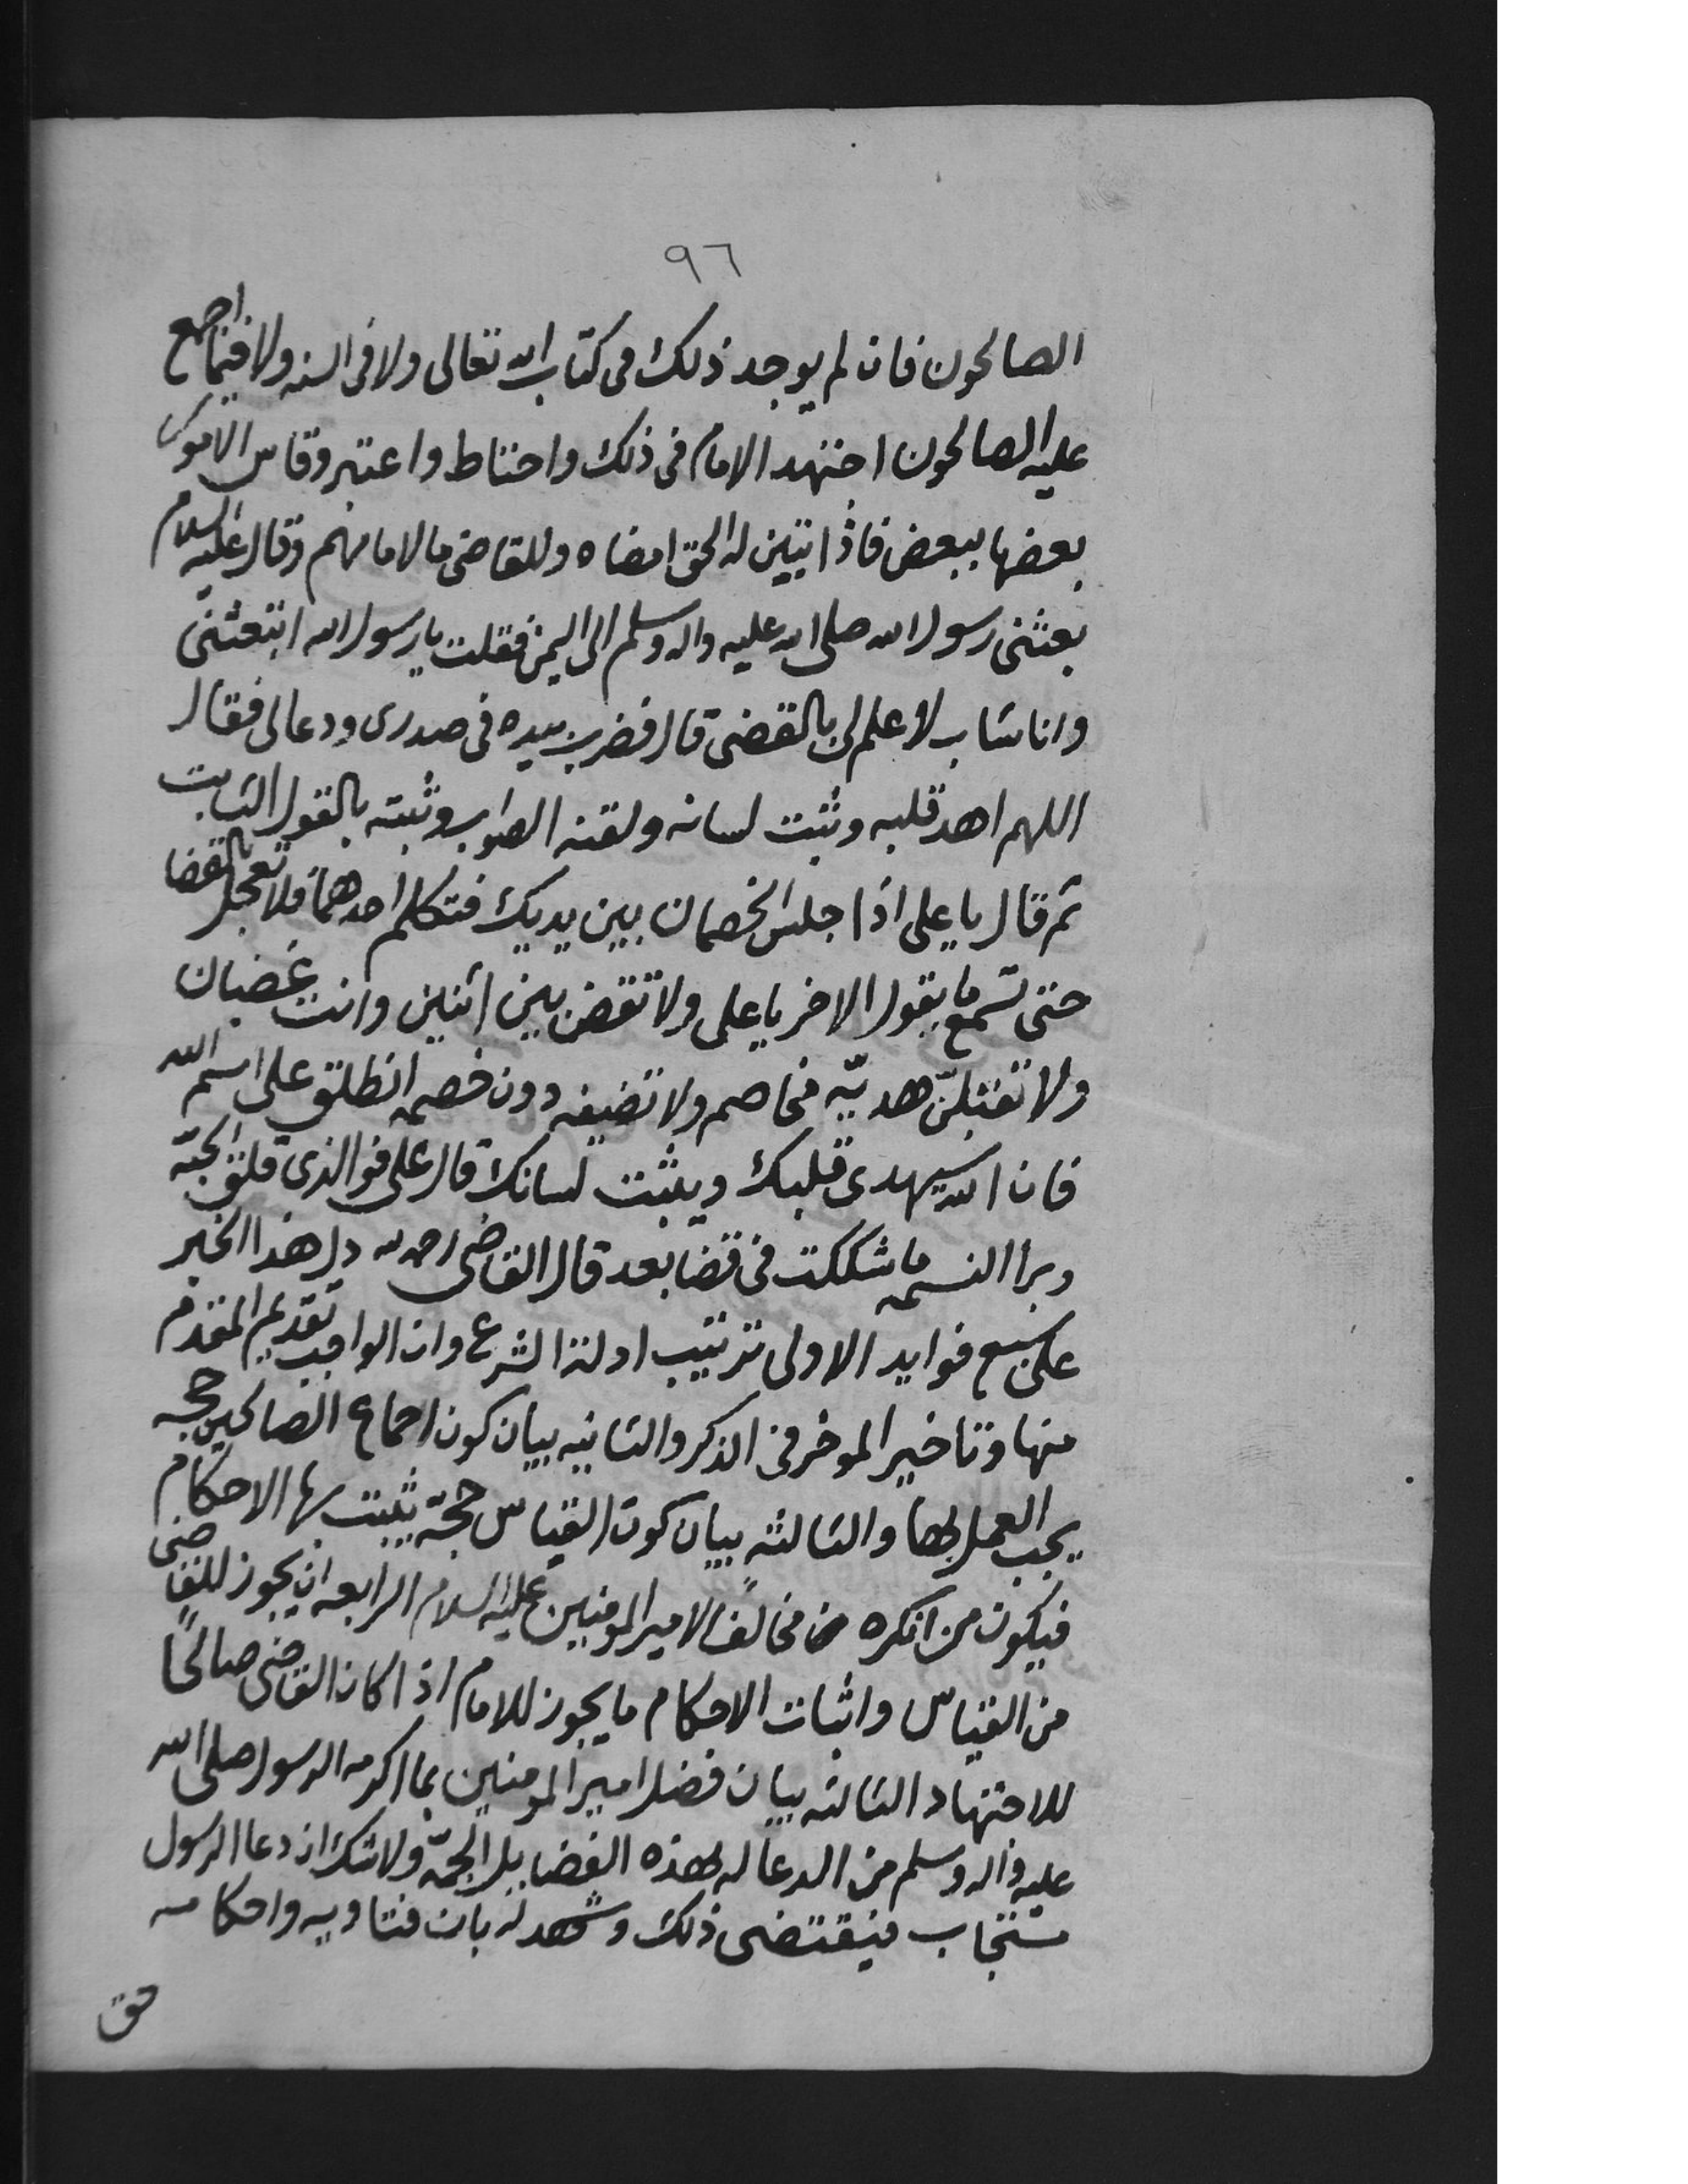 ٩٦
الصالحون فان لم يوجد ذلك فى كتاب الله تعالى ولا فى السنه ولا فيما اجمع
عليه الصالحون اجتهد الامام فى ذلك واحتاط واعتبر وقاس الامور
بعضها ببعض فاذا تبين له الحق امضاه وللقاضى ما لامامهم وقال عليه السلام
بعثنى رسول الله صلى الله عليه واله وسلم الى اليمن فقلت يا رسول الله اتبعثنى
وانا شاب لا علم لى بالقضى قال فضرب بيده فى صدرى ودعا لى فقال
اللهم اهد قلبه وثبت لسانه ولقنه الصواب وثبته بالقول الثابت
ثم قال يا على اذا جلس الخصمان بين يديك فتكلم احدهما فلا تعجل بالقضا
حتى تسمع ما يقول الاخر يا على ولا تقض بين اثنين وانت غضبان
ولا تقبلنّ هديّه مخاصم ولا تضيفه دون خصمه انطلق على اسم الله
فان الله سيهدى قلبك ويثبت لسانك قال على فوالذى فلق الحبّه
وبرا النسمه ما شككت فى قضا بعد قال القاضى رحمه الله دل هذا الخبر
على سبع فوايد الاولى ترتيب ادلة الشرع وان الواجب تقديم المتقدم
منها وتاخير الموخر فى الذكر والثانيه بيان كون اجماع الصالحين حجه
يجب العمل بها والثالثه بيان كون القياس حجّه يثبت بها الاحكام
فيكون من انكره مخالفًا لامير المومنين عليه السلام الرابعه ان يجوز للقاضى
من القياس واثبات الاحكام ما يجوز للامام اذا كان القاضى صالحًا
للاجتهاد الثالثه بيان فضل امير المومنين بما اكرمه الرسول صلى الله
عليه واله وسلم من الدعا له بهذه الفضايل الجمّه ولا شك ان دعا الرسول
مستجاب فيقتضى ذلك وشهد له بان فتاويه واحكامه
حق